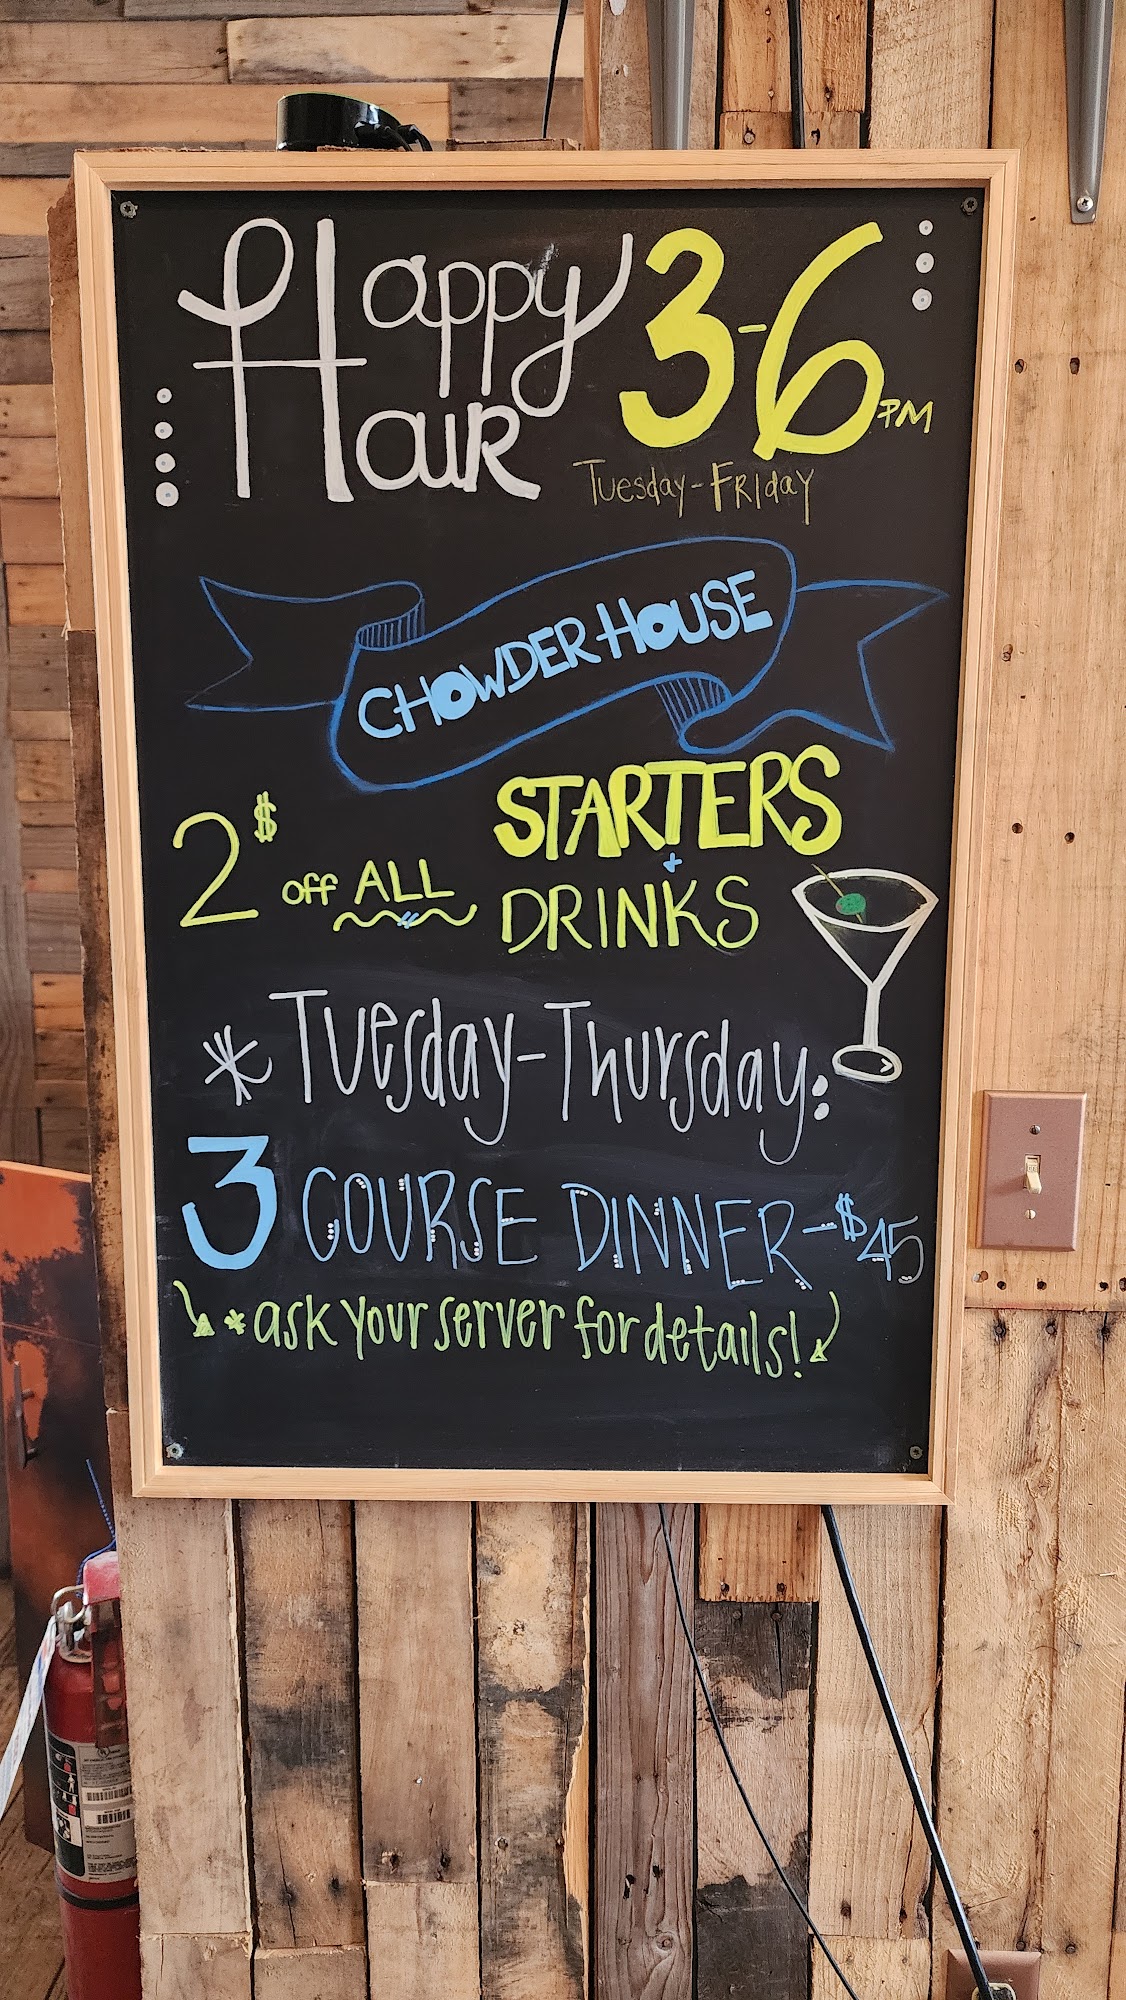 Happy 3-6 PM
Hour
Tuesday-Friday
CHOWDER HOUSE
2$ off ALL STARTERS
+
DRINKS
* Tuesday-Thursday:
3 COURSE DINNER-$45
*ask your server for details!